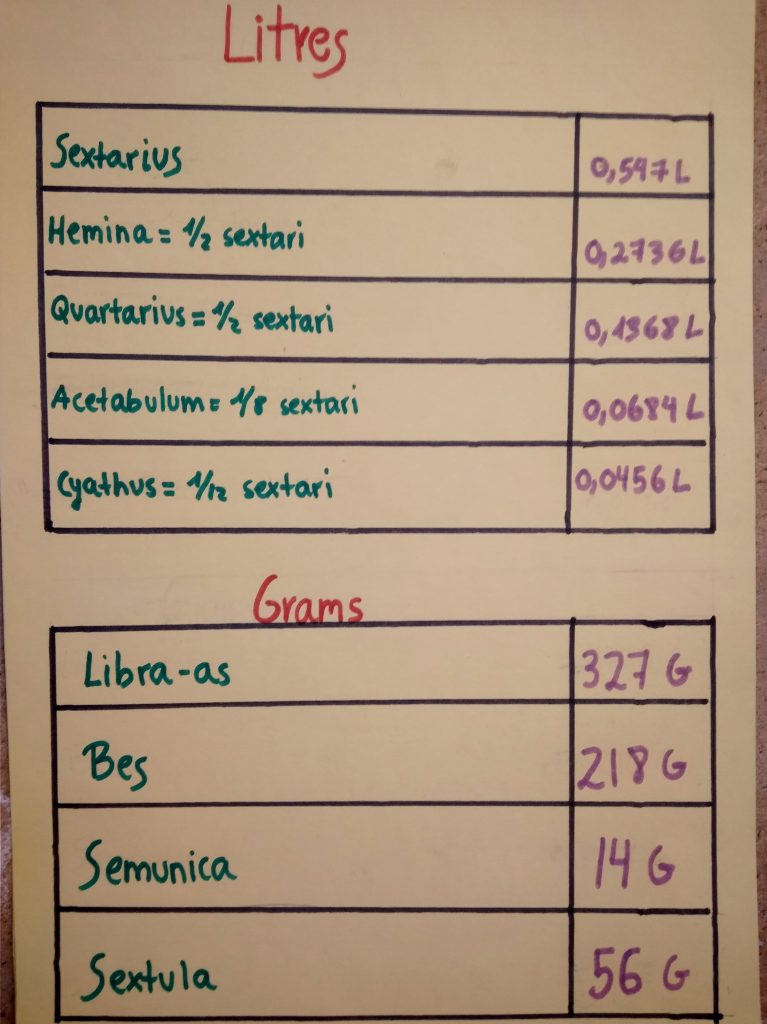 Litres
Sextarius 0,547L
Hemina = 1/2 sextari 0,2736L
Quartarius = 1/2 sextari 0,1368L
Acetabulum = 1/8 sextari 0,0684L
Cyathus = 1/12 sextari 0,0456L
Grams
Libra-as 327 G
Bes 218 G
Semunica 14 G
Sextula 56 G